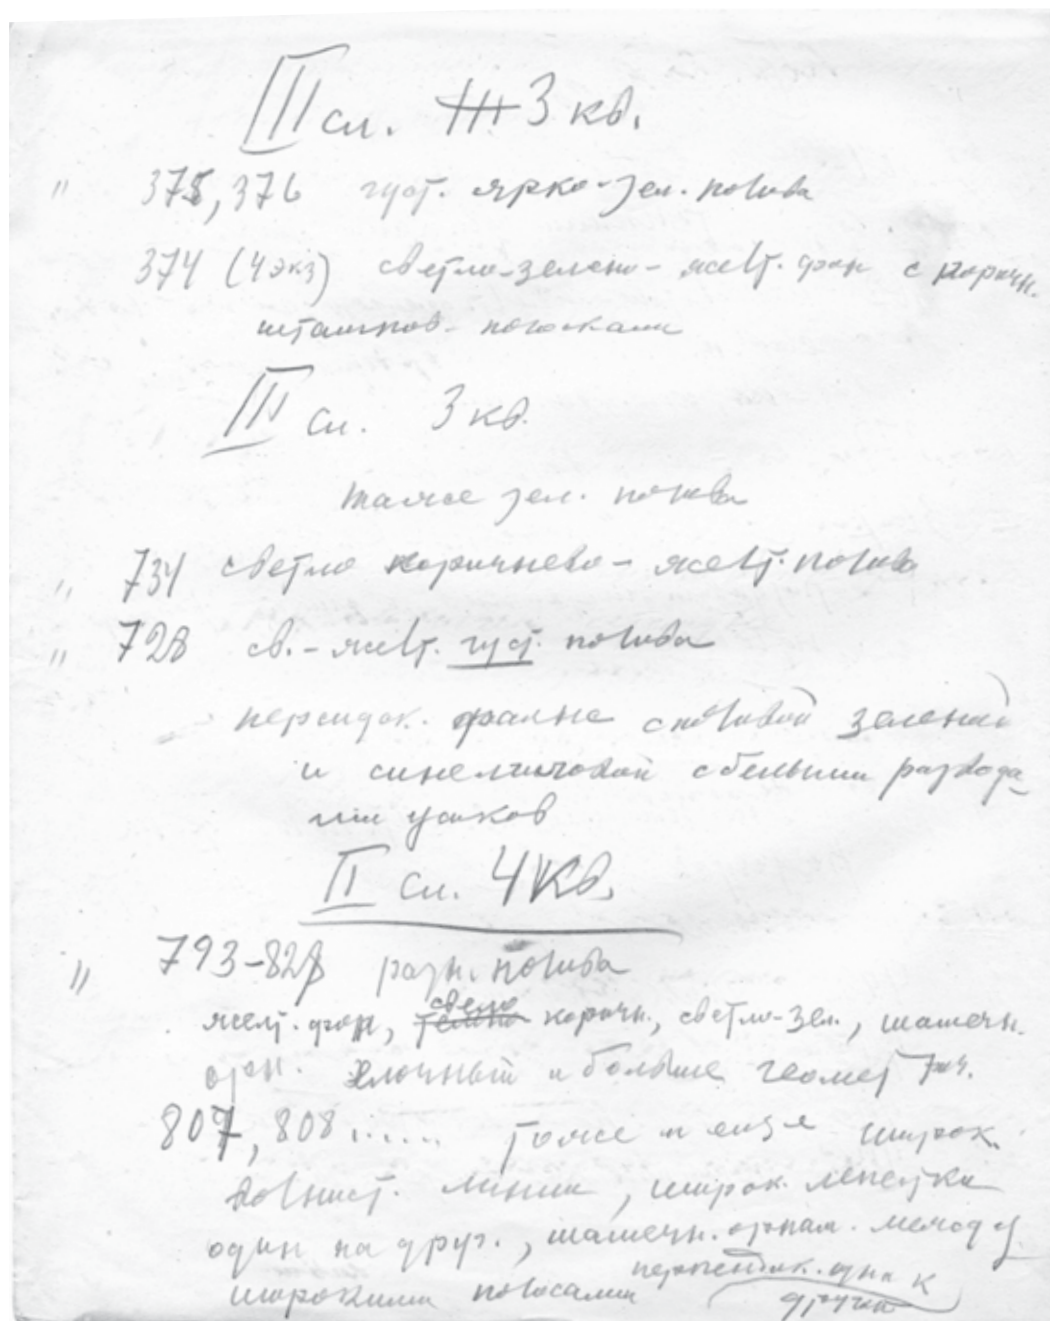 III сл. III 3 кв.
" 375, 376 густ. ярко-зел. полива
374 (4 экз) светло-зелено-желт. фон с коричн.
штампов. полосками
III сл. 3 кв.
также зел. полива
" 734 светло коричнево-желт. полива
" 728 св.-желт. густ. полива
персидск. фаянс с поливой зеленой
и синелиловой с белыми развода-
ми узоров
II сл. 4 кв.
" 793-828 разн. полива
желт. фон, светло коричн., светло-зел., шашечн.
орн. елочный и больше геометрич.
807, 808 ..... тоже и еще широк.
волнист. линии, широк. лепестки
один на друг., шашечн. орнам. между
широкими полосами перпендик. одна к
другой